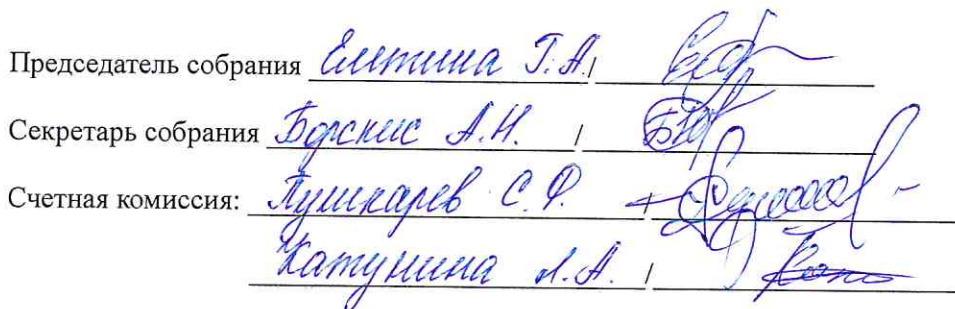 Председатель собрания Елетина Г.А. /
Секретарь собрания Борскис А.Н. /
Счетная комиссия: Пушкарев С.Ф. /
Катунина Л.А. /